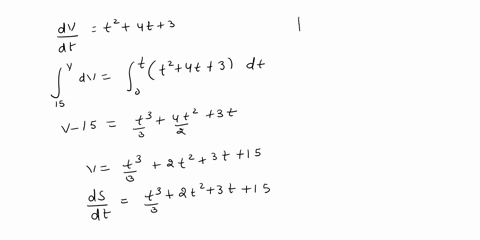 dv/dt = t² + 4t + 3
∫₁₅ᵛ dv = ∫₀ᵗ (t² + 4t + 3) dt
v - 15 = t³/3 + 4t²/2 + 3t
v = t³/3 + 2t² + 3t + 15
ds/dt = t³/3 + 2t² + 3t + 15